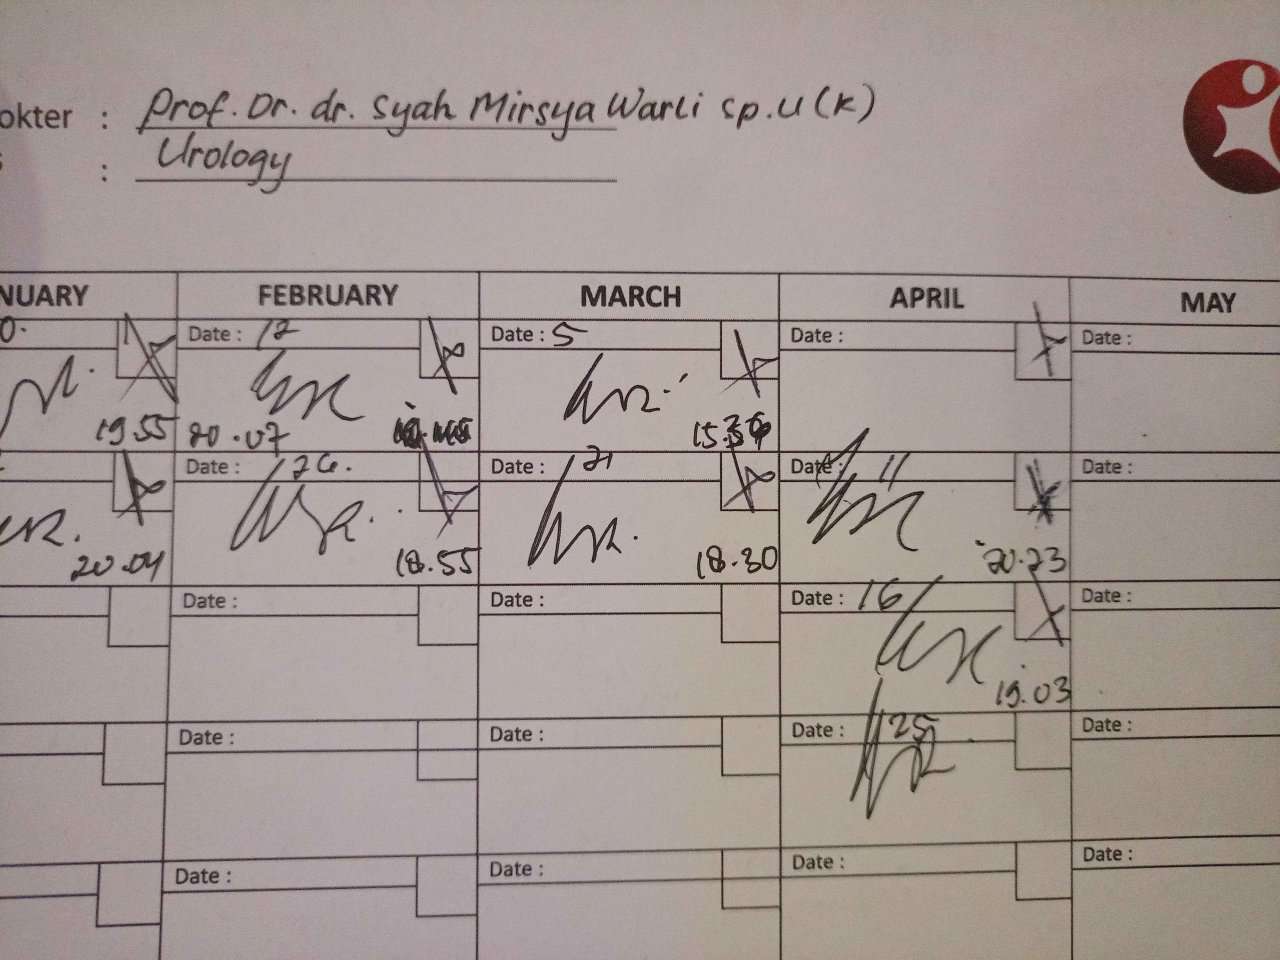 okter : Prof. Dr. dr. Syah Mirsya Warli Sp.U(K)
: Urology
NUARY FEBRUARY MARCH APRIL MAY
0. Date : 12 Date : 5 Date : Date :
19.55 20.07
Date : 26. Date : 21 Date : 11 Date :
20.04 18.55 18.30 20.23
Date : Date : Date : 16 Date :
19.03
Date : Date : Date : 25 Date :
Date : Date : Date : Date :